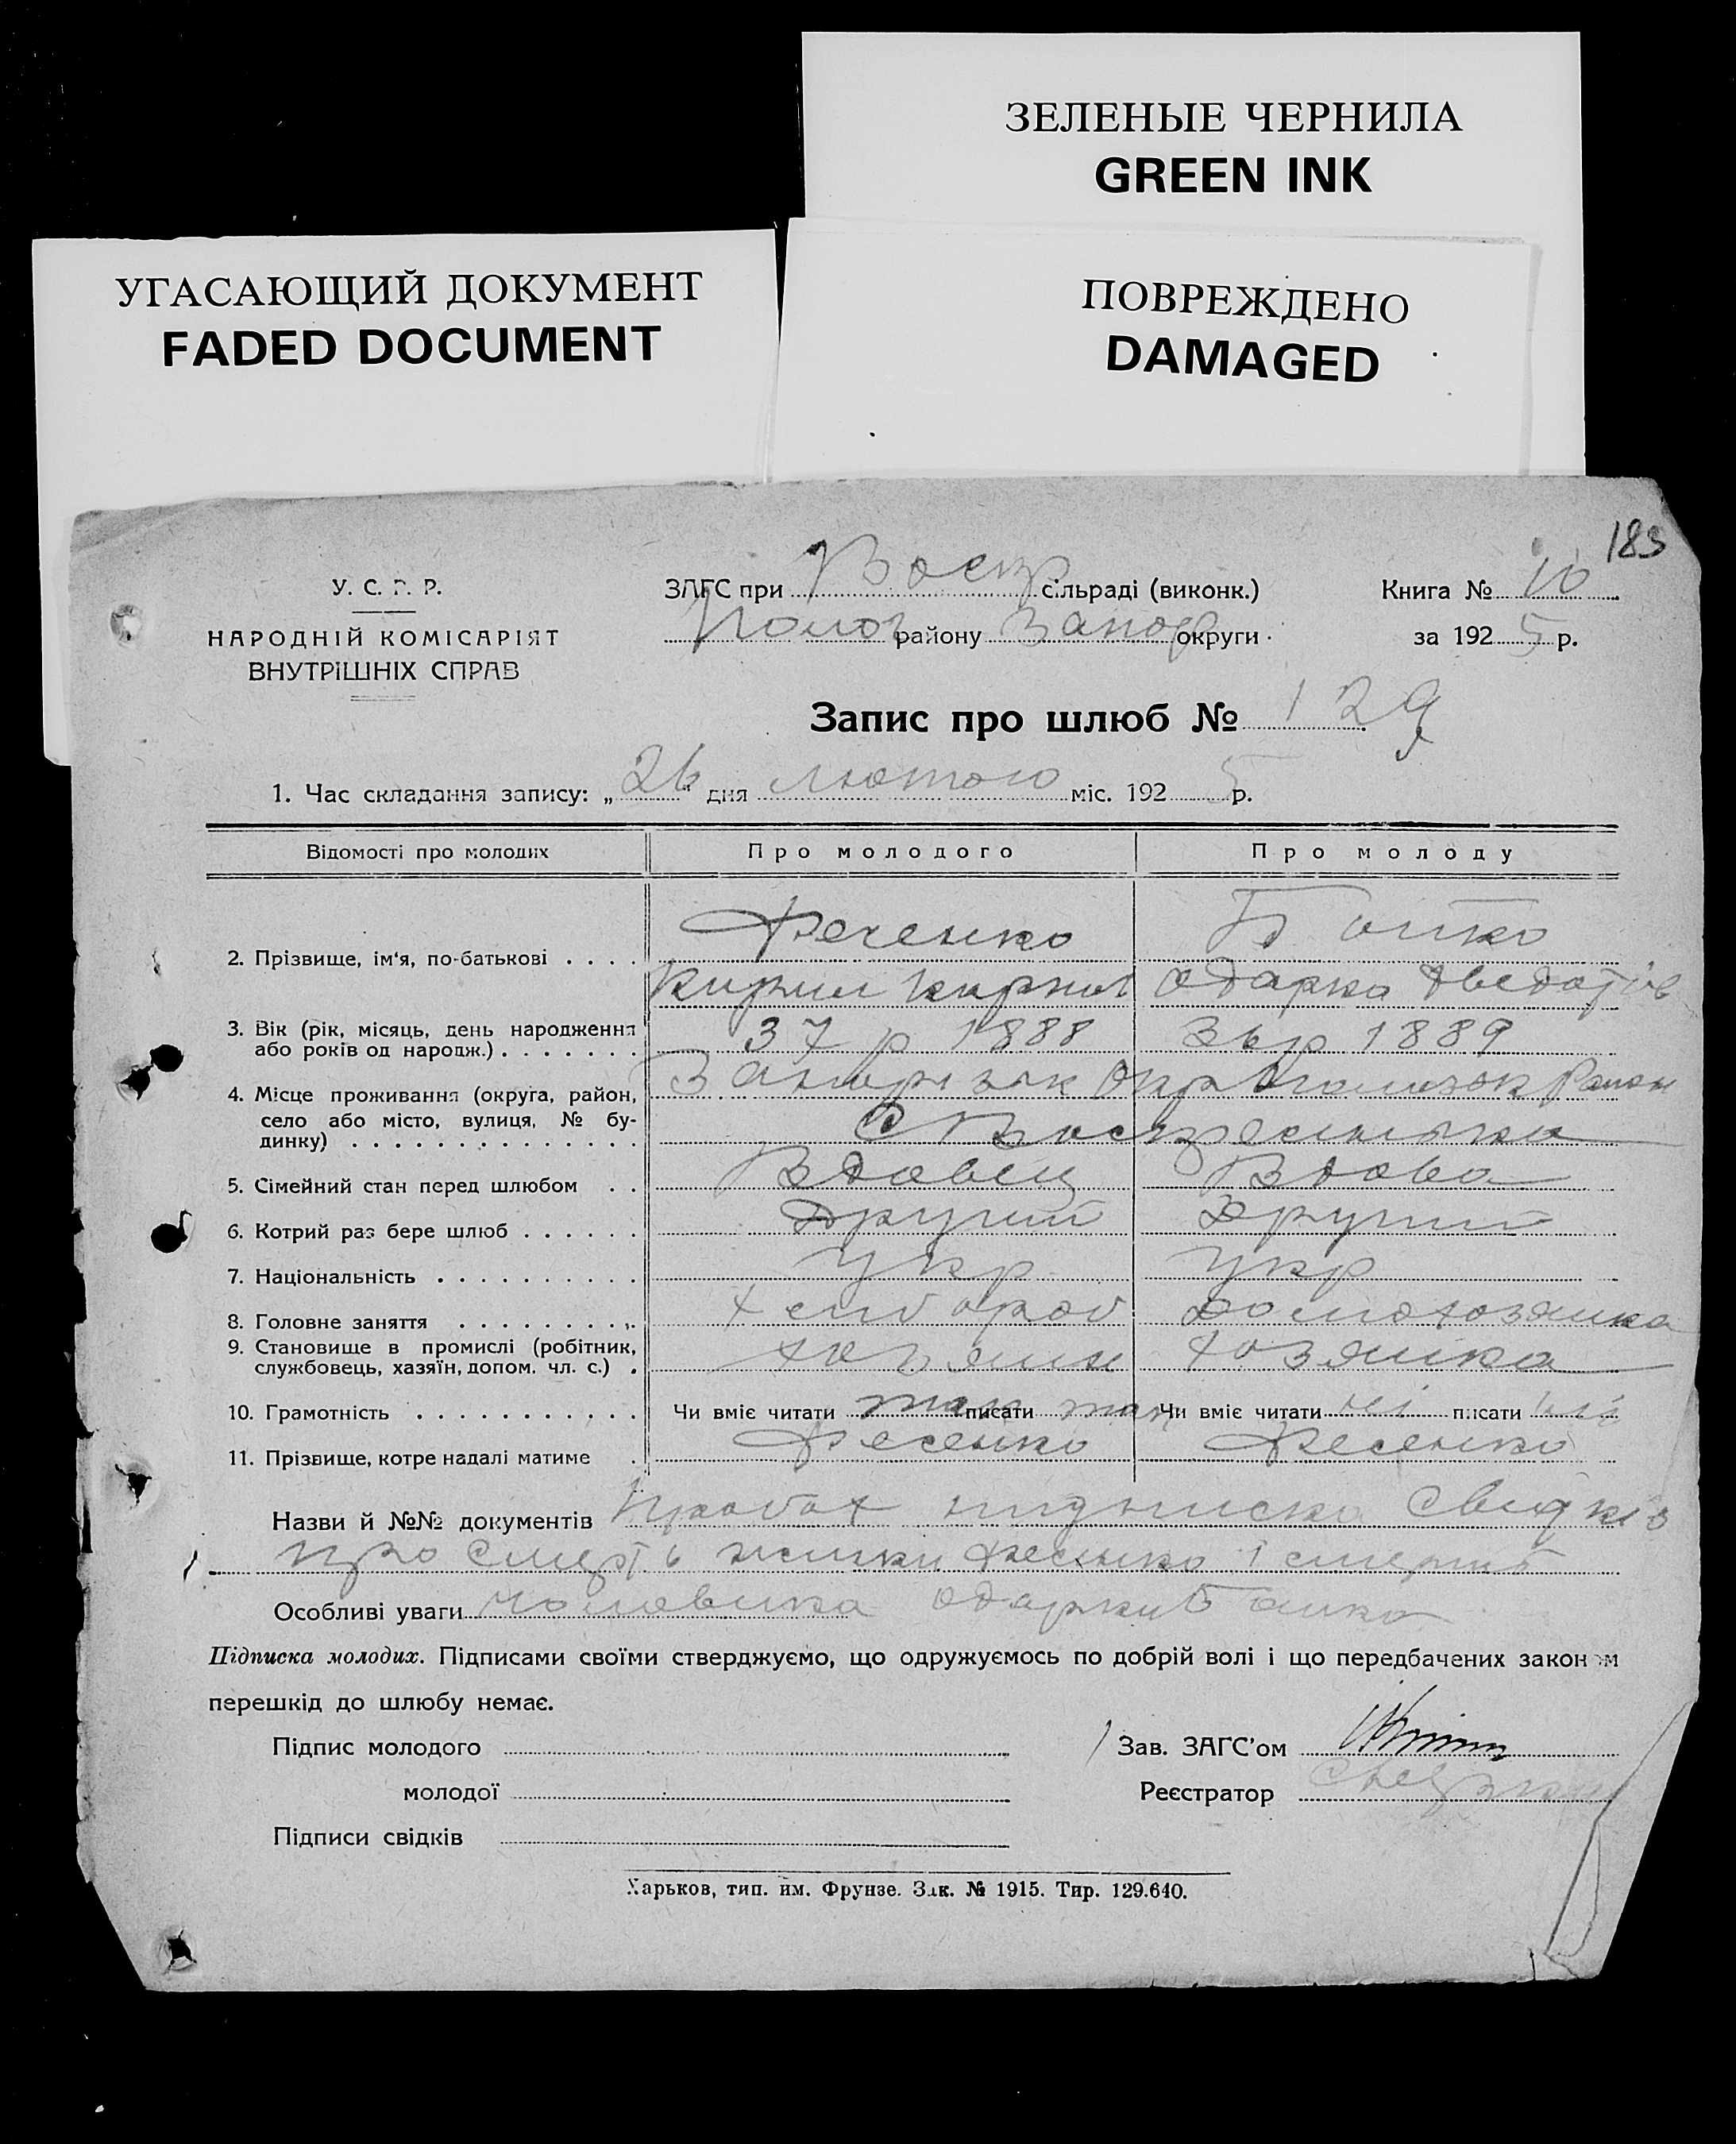 ЗЕЛЕНЫЕ ЧЕРНИЛА
GREEN INK
УГАСАЮЩИЙ ДОКУМЕНТ
FADED DOCUMENT
ПОВРЕЖДЕНО
DAMAGED
183
У. С. Р. Р.
НАРОДНІЙ КОМІСАРІЯТ
ВНУТРІШНІХ СПРАВ
ЗАГС при Воскр сільраді (виконк.)
Полог району Запор округи
Книга № 10
за 1925 р.
Запис про шлюб № 129
1. Час складання запису: „26" дня лютого міс. 1925 р.
Відомості про молодих Про молодого Про молоду
2. Прізвище, ім'я, по-батькові Фесенко
Кирил Одарка
3. Вік (рік, місяць, день народження 37 р 1888 36 р 1889
або років од народж.)
4. Місце проживання (округа, район, Окр
село або місто, вулиця, № бу-
динку)
5. Сімейний стан перед шлюбом Вдовец Вдова
6. Котрий раз бере шлюб Другий Другий
7. Національність Укр Укр
8. Головне заняття хлибороб домохозяика
9. Становище в промислі (робітник, хозяин хозяика
службовець, хазяїн, допом. чл. с.)
10. Грамотність Чи вміє читати так писати так Чи вміє читати ні писати ні
11. Прізвище, котре надалі матиме Фесенко Фесенко
Назви й №№ документів підписка свидків
про смерть жинки Фесенко і смерть
Особливі уваги чоловика Одарки
Підписка молодих. Підписами своїми стверджуємо, що одружуємось по добрій волі і що передбачених законом
перешкід до шлюбу немає.
Підпис молодого
Зав. ЗАГС'ом
молодої
Реєстратор
Підписи свідків
Харьков, тип. им. Фрунзе. Зак. № 1915. Тир. 129.640.